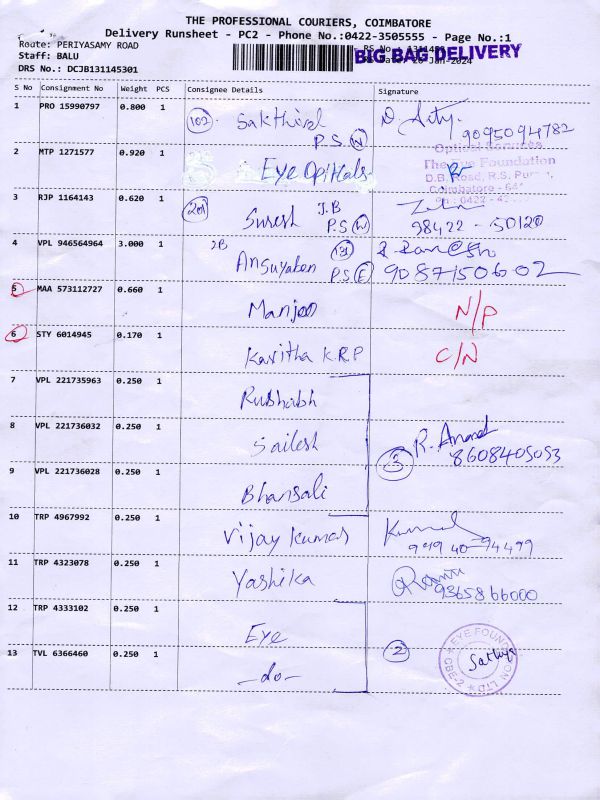 THE PROFESSIONAL COURIERS, COIMBATORE
Delivery Runsheet - PC2 - Phone No.:0422-3505555 - Page No.:1
Route: PERIYASAMY ROAD
Staff: BALU
BIG BAG DELIVERY
DRS No.: DCJB131145301
S No Consignment No Weight PCS Consignee Details Signature
1 PRO 15990797 0.800 1 102 Sakthivel
P.S (W) 9095094782
2 MTP 1271577 0.920 1 Eye Opticals
Optical Services
The Eye Foundation
D.B. Road, R.S.
Coimbatore - 64
3 RJP 1164143 0.620 1 201 Suresh J.B
P.S (W) 98422 - 50120
4 VPL 946564964 3.000 1 JB Ansuyaben 131
P.S (E) 9087150602
5 MAA 573112727 0.660 1 Manjoo N/P
6 STY 6014945 0.170 1 Kavitha K.R.P C/N
7 VPL 221735963 0.250 1 Rushabh
8 VPL 221736032 0.250 1 Sailesh 3 R. Anand
8608405053
9 VPL 221736028 0.250 1 Bhansali
10 TRP 4967992 0.250 1 Vijay Kumar Kumar
949 40-94499
11 TRP 4323078 0.250 1 Yashika
9365866000
12 TRP 4333102 0.250 1 Eye
13 TVL 6366460 0.250 1 -do- 2 Sathya
EYE FOUN
CBE-2